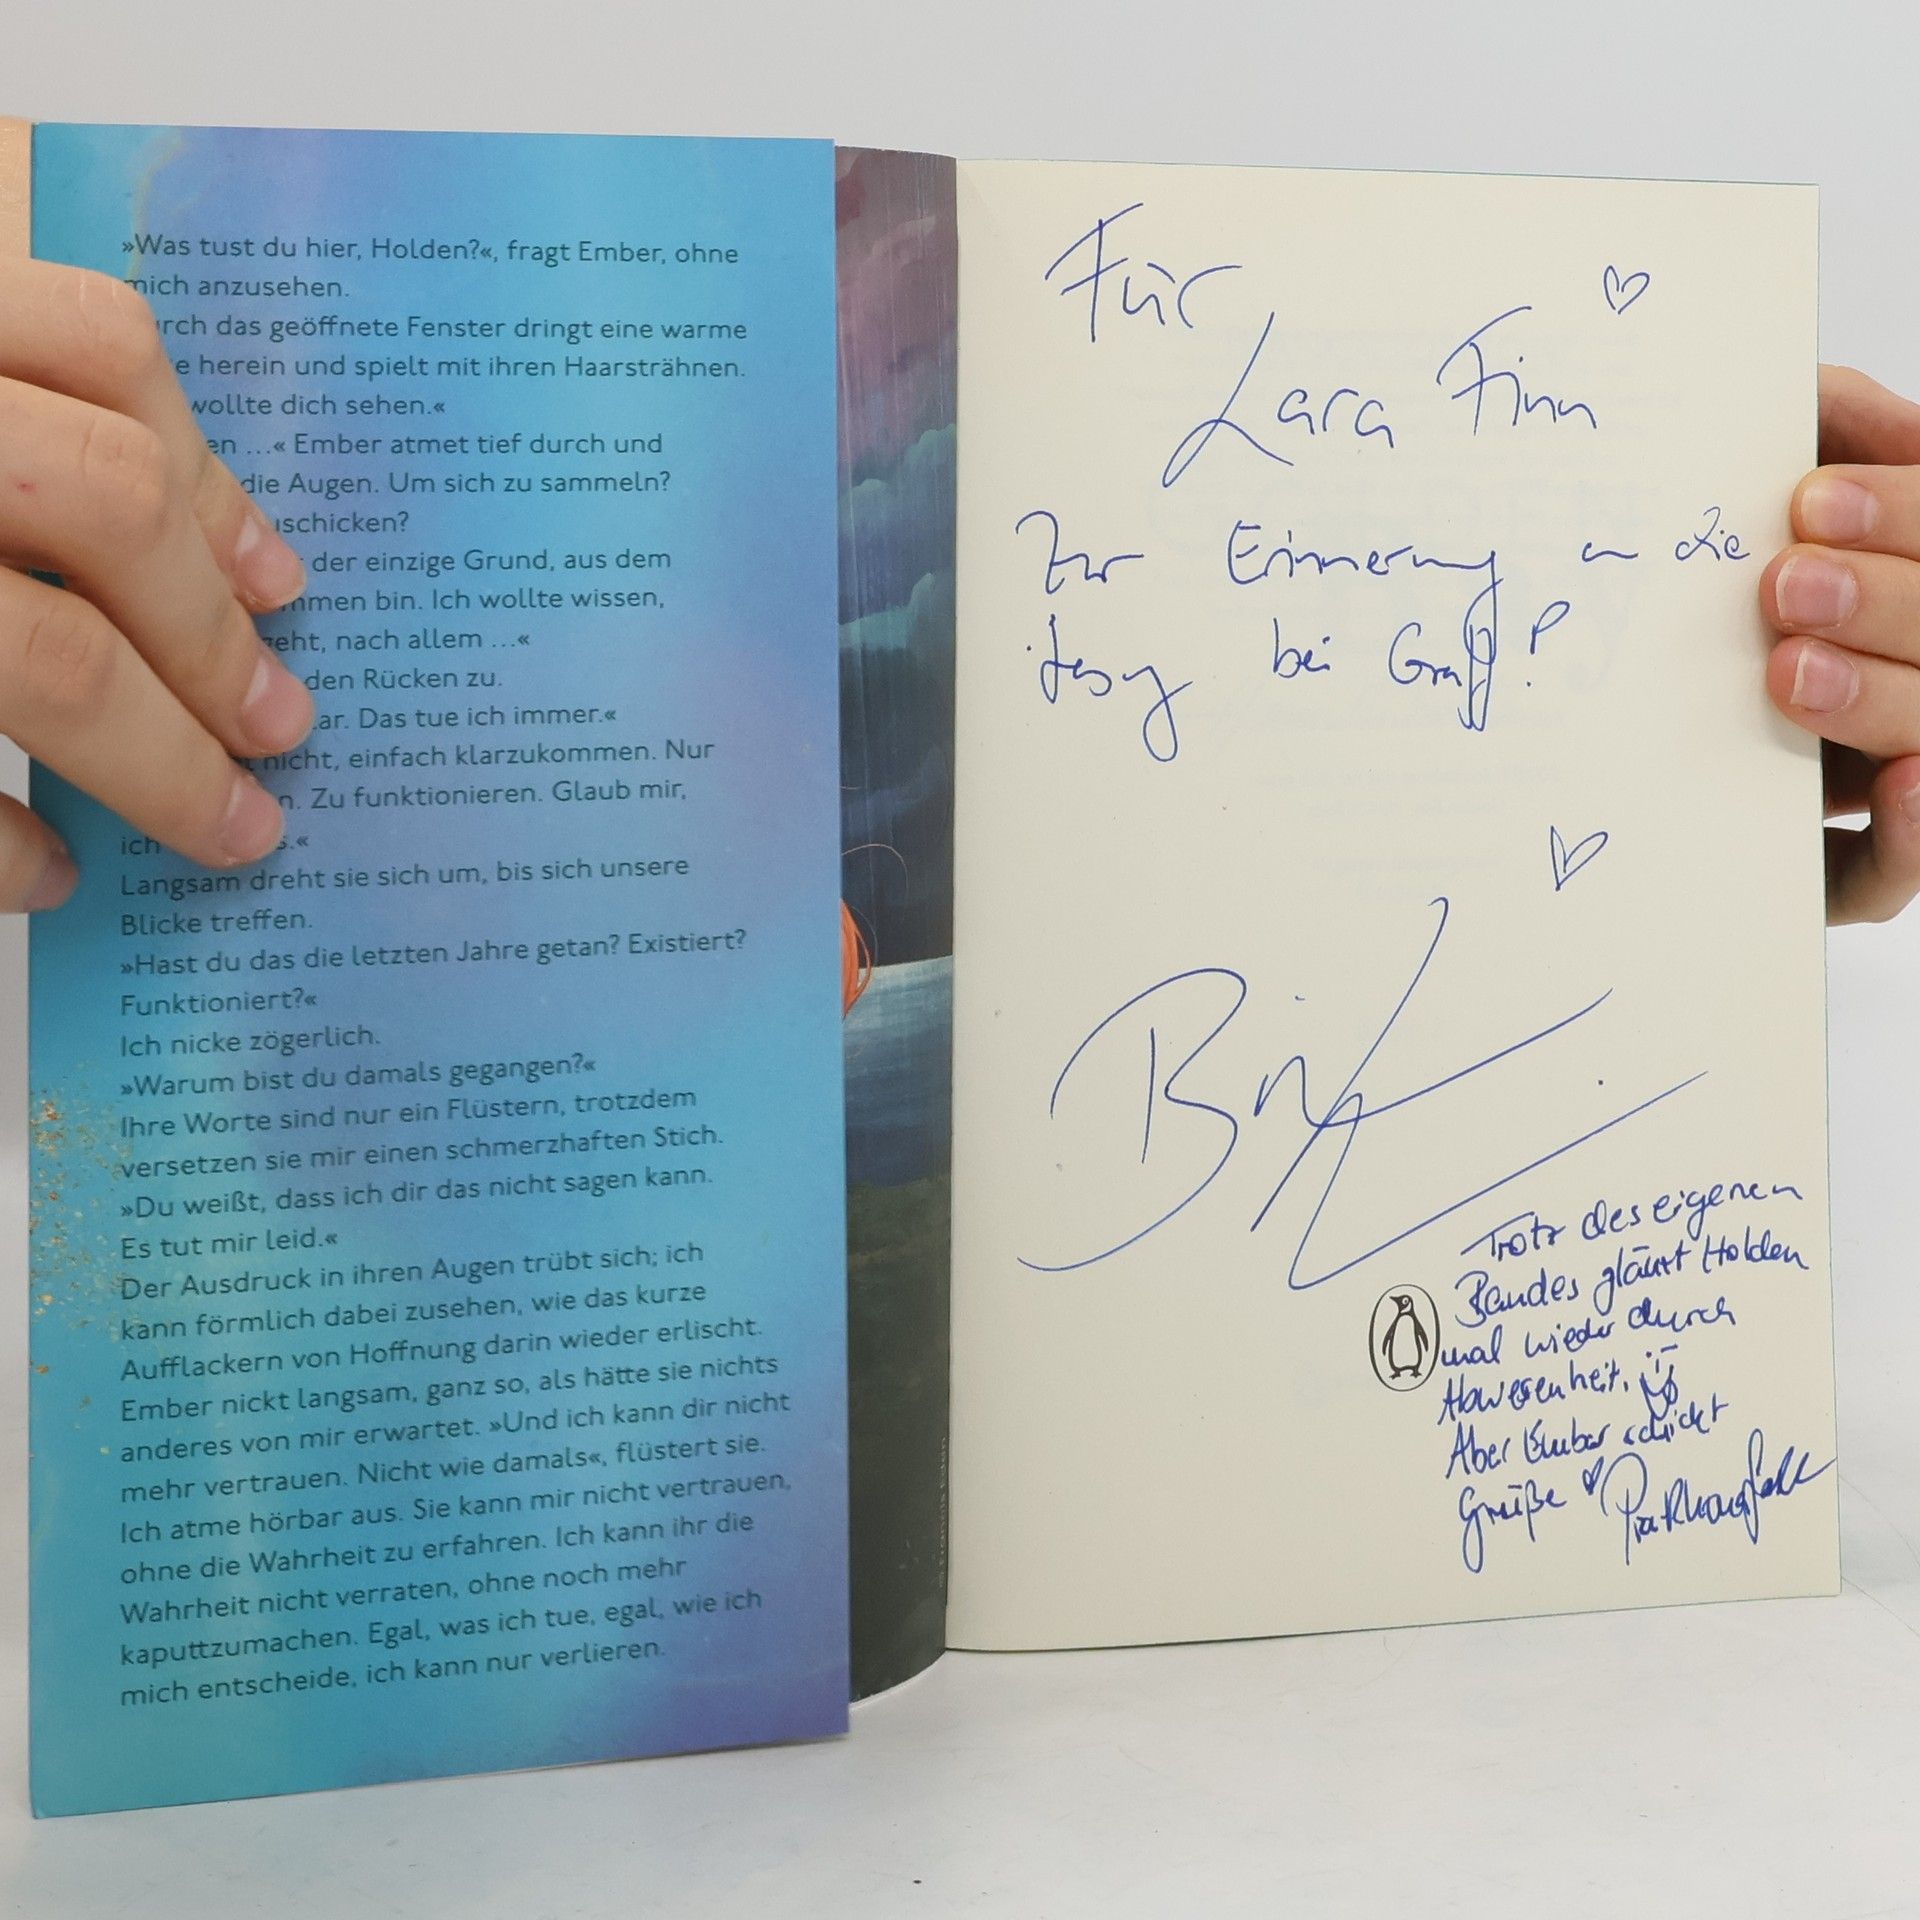 »Was tust du hier, Holden?«, fragt Ember, ohne
mich anzusehen.
das geöffnete Fenster dringt eine warme
herein und spielt mit ihren Haarsträhnen.
wollte dich sehen.«
...« Ember atmet tief durch und
die Augen. Um sich zu sammeln?
der einzige Grund, aus dem
bin. Ich wollte wissen,
nach allem ...«
den Rücken zu.
Das tue ich immer.«
nicht, einfach klarzukommen. Nur
Zu funktionieren. Glaub mir,
ich
Langsam dreht sie sich um, bis sich unsere
Blicke treffen.
»Hast du das die letzten Jahre getan? Existiert?
Funktioniert?«
Ich nicke zögerlich.
»Warum bist du damals gegangen?«
Ihre Worte sind nur ein Flüstern, trotzdem
versetzen sie mir einen schmerzhaften Stich.
»Du weißt, dass ich dir das nicht sagen kann.
Es tut mir leid.«
Der Ausdruck in ihren Augen trübt sich; ich
kann förmlich dabei zusehen, wie das kurze
Aufflackern von Hoffnung darin wieder erlischt.
Ember nickt langsam, ganz so, als hätte sie nichts
anderes von mir erwartet. »Und ich kann dir nicht
mehr vertrauen. Nicht wie damals«, flüstert sie.
Ich atme hörbar aus. Sie kann mir nicht vertrauen,
ohne die Wahrheit zu erfahren. Ich kann ihr die
Wahrheit nicht verraten, ohne noch mehr
kaputtzumachen. Egal, was ich tue, egal, wie ich
mich entscheide, ich kann nur verlieren.
Für
Lara Finn
Zur Erinnerung an die
bei Graff!
Trotz des eigenen
Bandes glänzt Holden
mal wieder durch
Abwesenheit.
Aber Ember schickt
Grüße